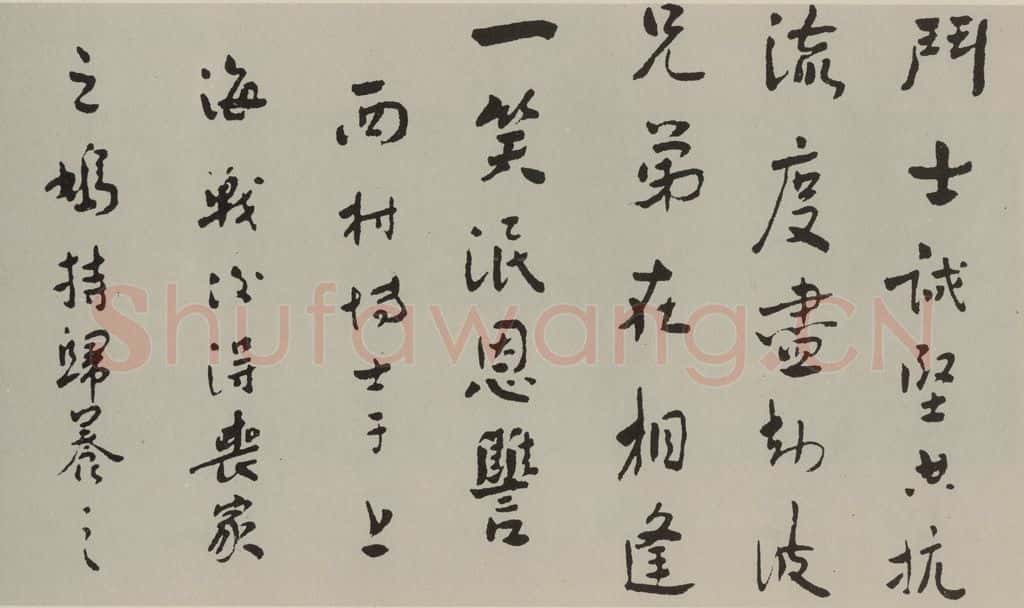 鬥士誠堅共抗
流度盡劫波
兄弟在相逢
一笑泯恩讐
西村博士于上
海戰後得喪家
之鳩持歸養之
Shufawang.CN